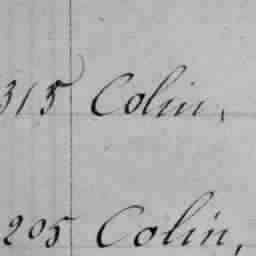 315 Colin,
205 Colin,